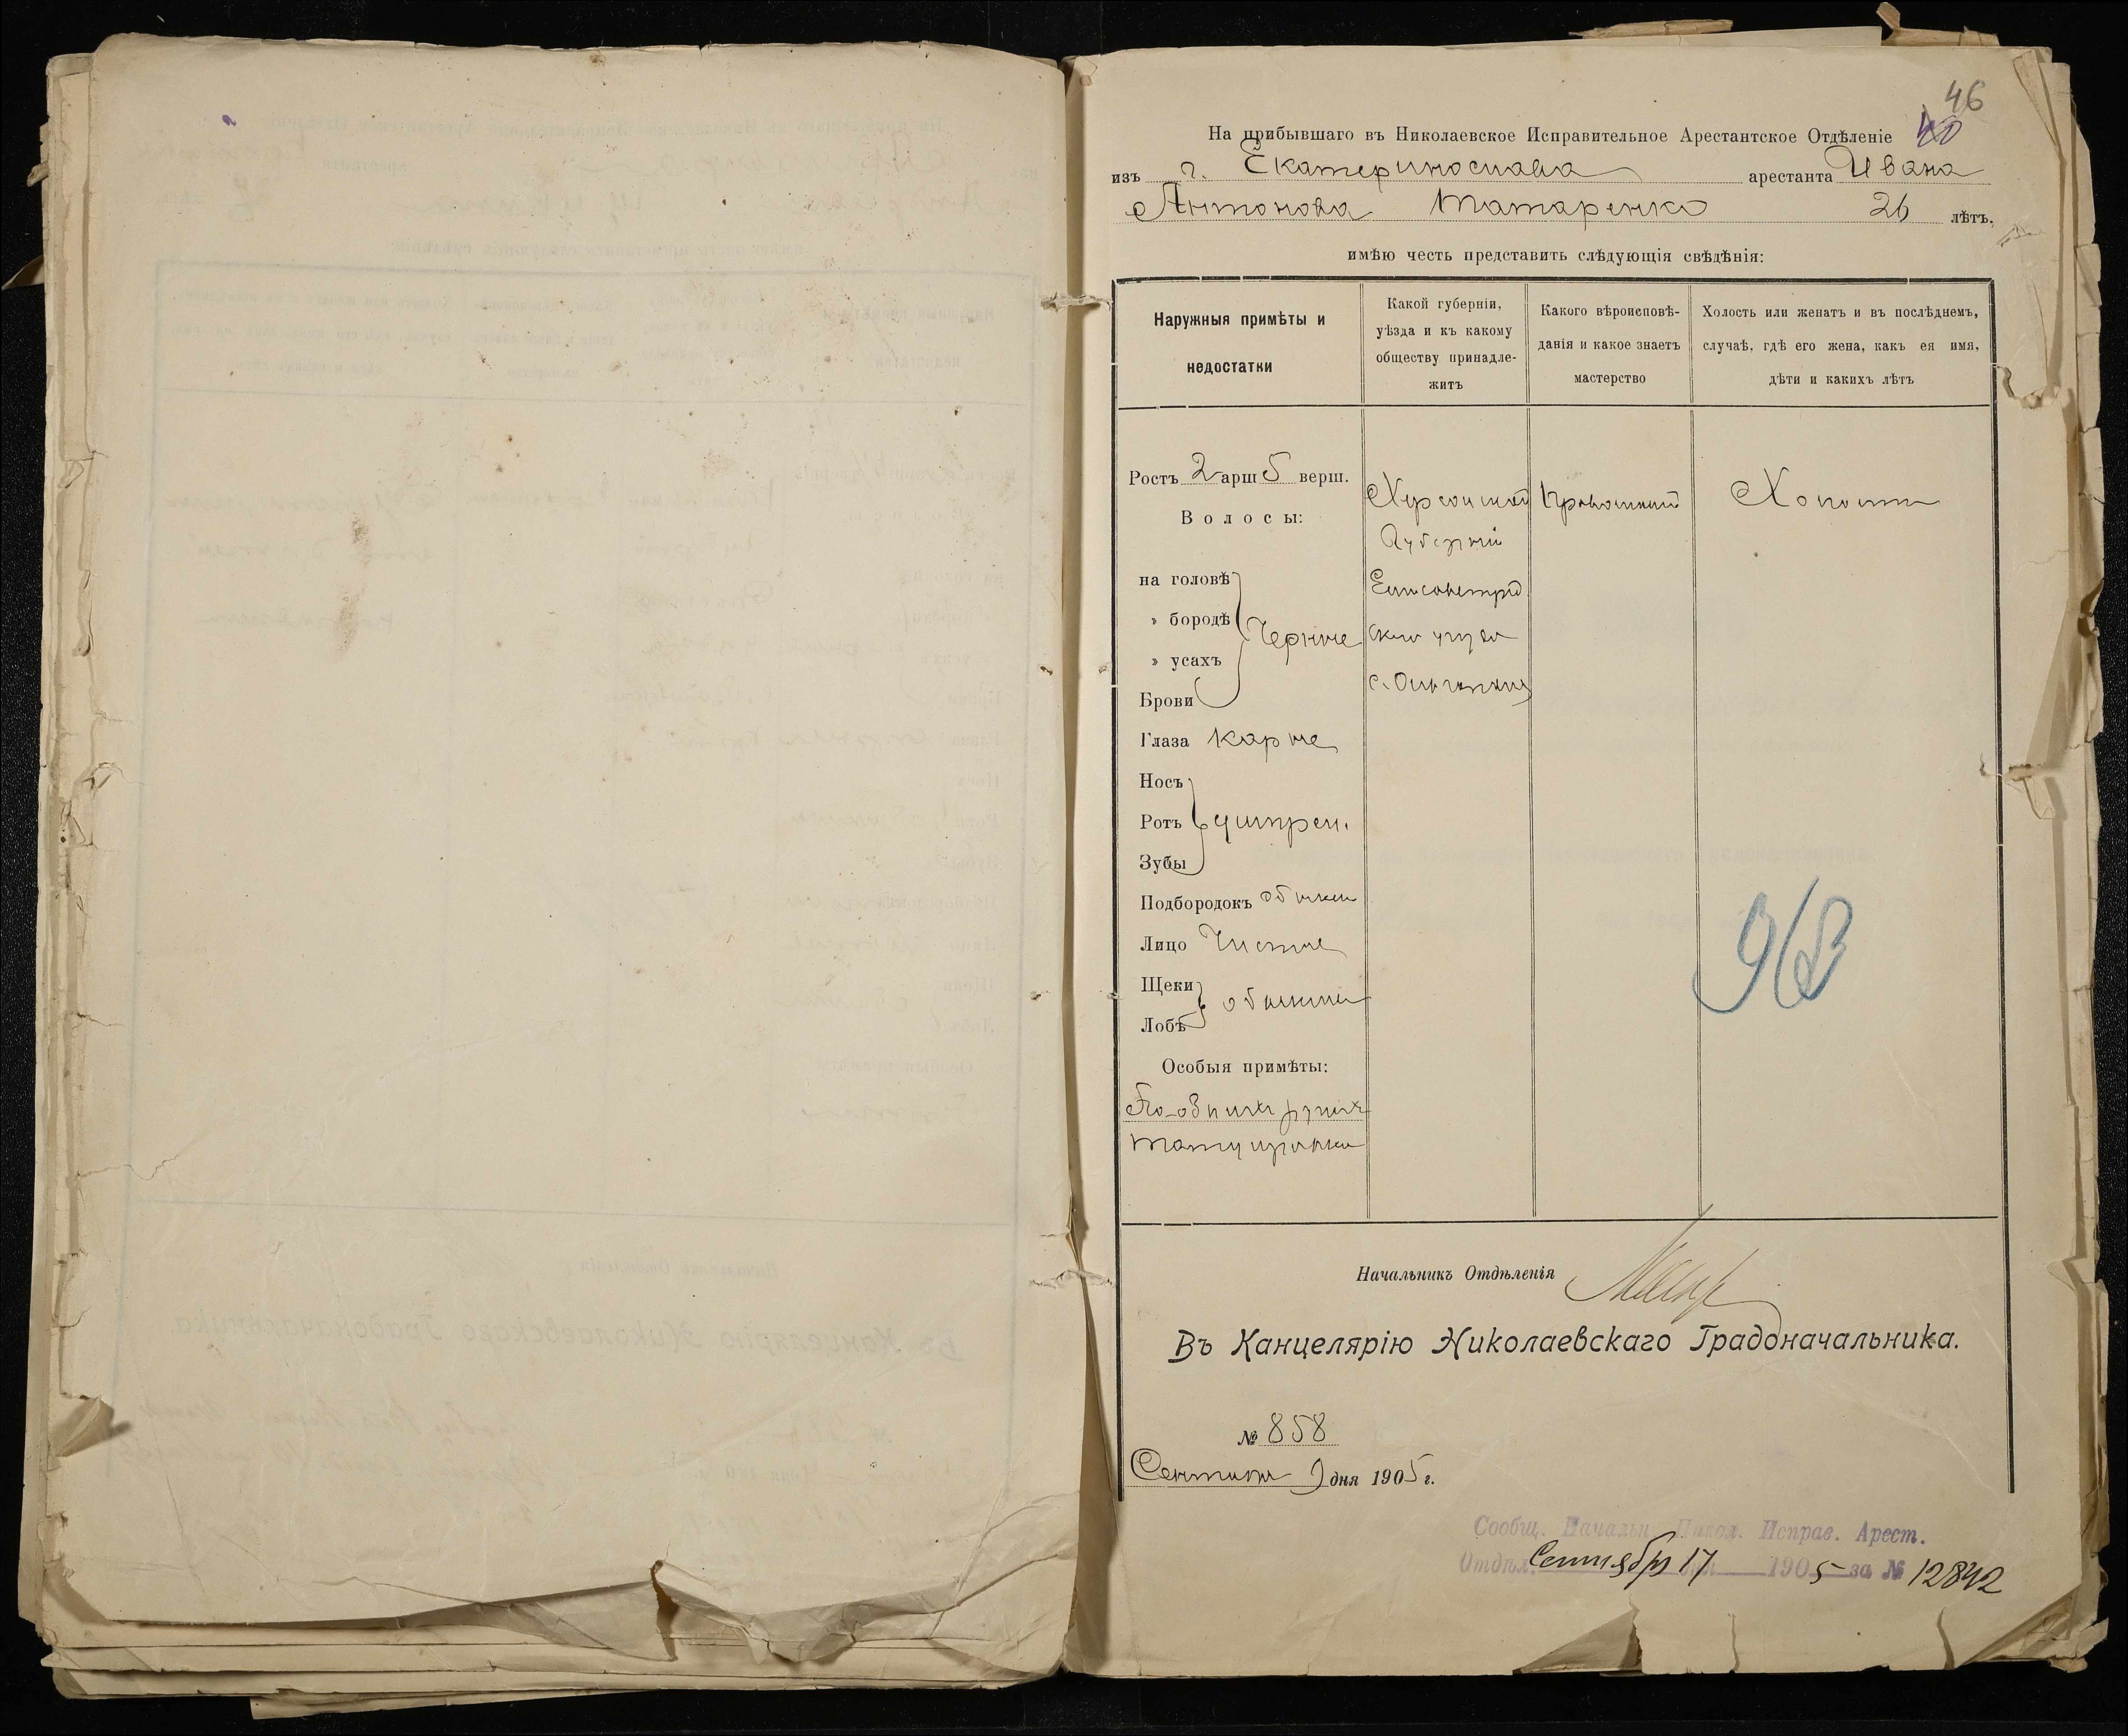 46
40
На прибывшаго въ Николаевское Исправительное Арестантское Отдѣленіе
изъ г. Екатеринослава арестанта Ивана
Антонова Татаренко 26 лѣтъ.
имѣю честь представить слѣдующія свѣдѣнія:
Наружныя примѣты и
недостатки
Какой губерніи,
уѣзда и къ какому
обществу принадле-
житъ
Какого вѣроисповѣ-
данія и какое знаетъ
мастерство
Холостъ или женатъ и въ послѣднемъ,
случаѣ, гдѣ его жена, какъ ея имя,
дѣти и какихъ лѣтъ
Ростъ 2 арш 5 верш.
Волосы:
на головѣ
» бородѣ
» усахъ
Брови
Черные
Глаза Каріе
Носъ
Ротъ умѣрен.
Зубы
Подбородокъ обыкн
Лицо Чистое
Щеки
Лобъ
обыкнов
Особыя примѣты:
На обѣихъ рукахъ
татуировка
Херсонской
Губерніи
Елисаветград
скаго уѣзда
с.
Православный
Холостъ
Начальникъ Отдѣленія
Въ Канцелярію Николаевскаго Градоначальника.
№ 858
Сентября 9 дня 1905 г.
Сообщ. Начальн. Никол. Исправ. Арест.
Отдѣл. Сентябр 17 1905 за № 12842